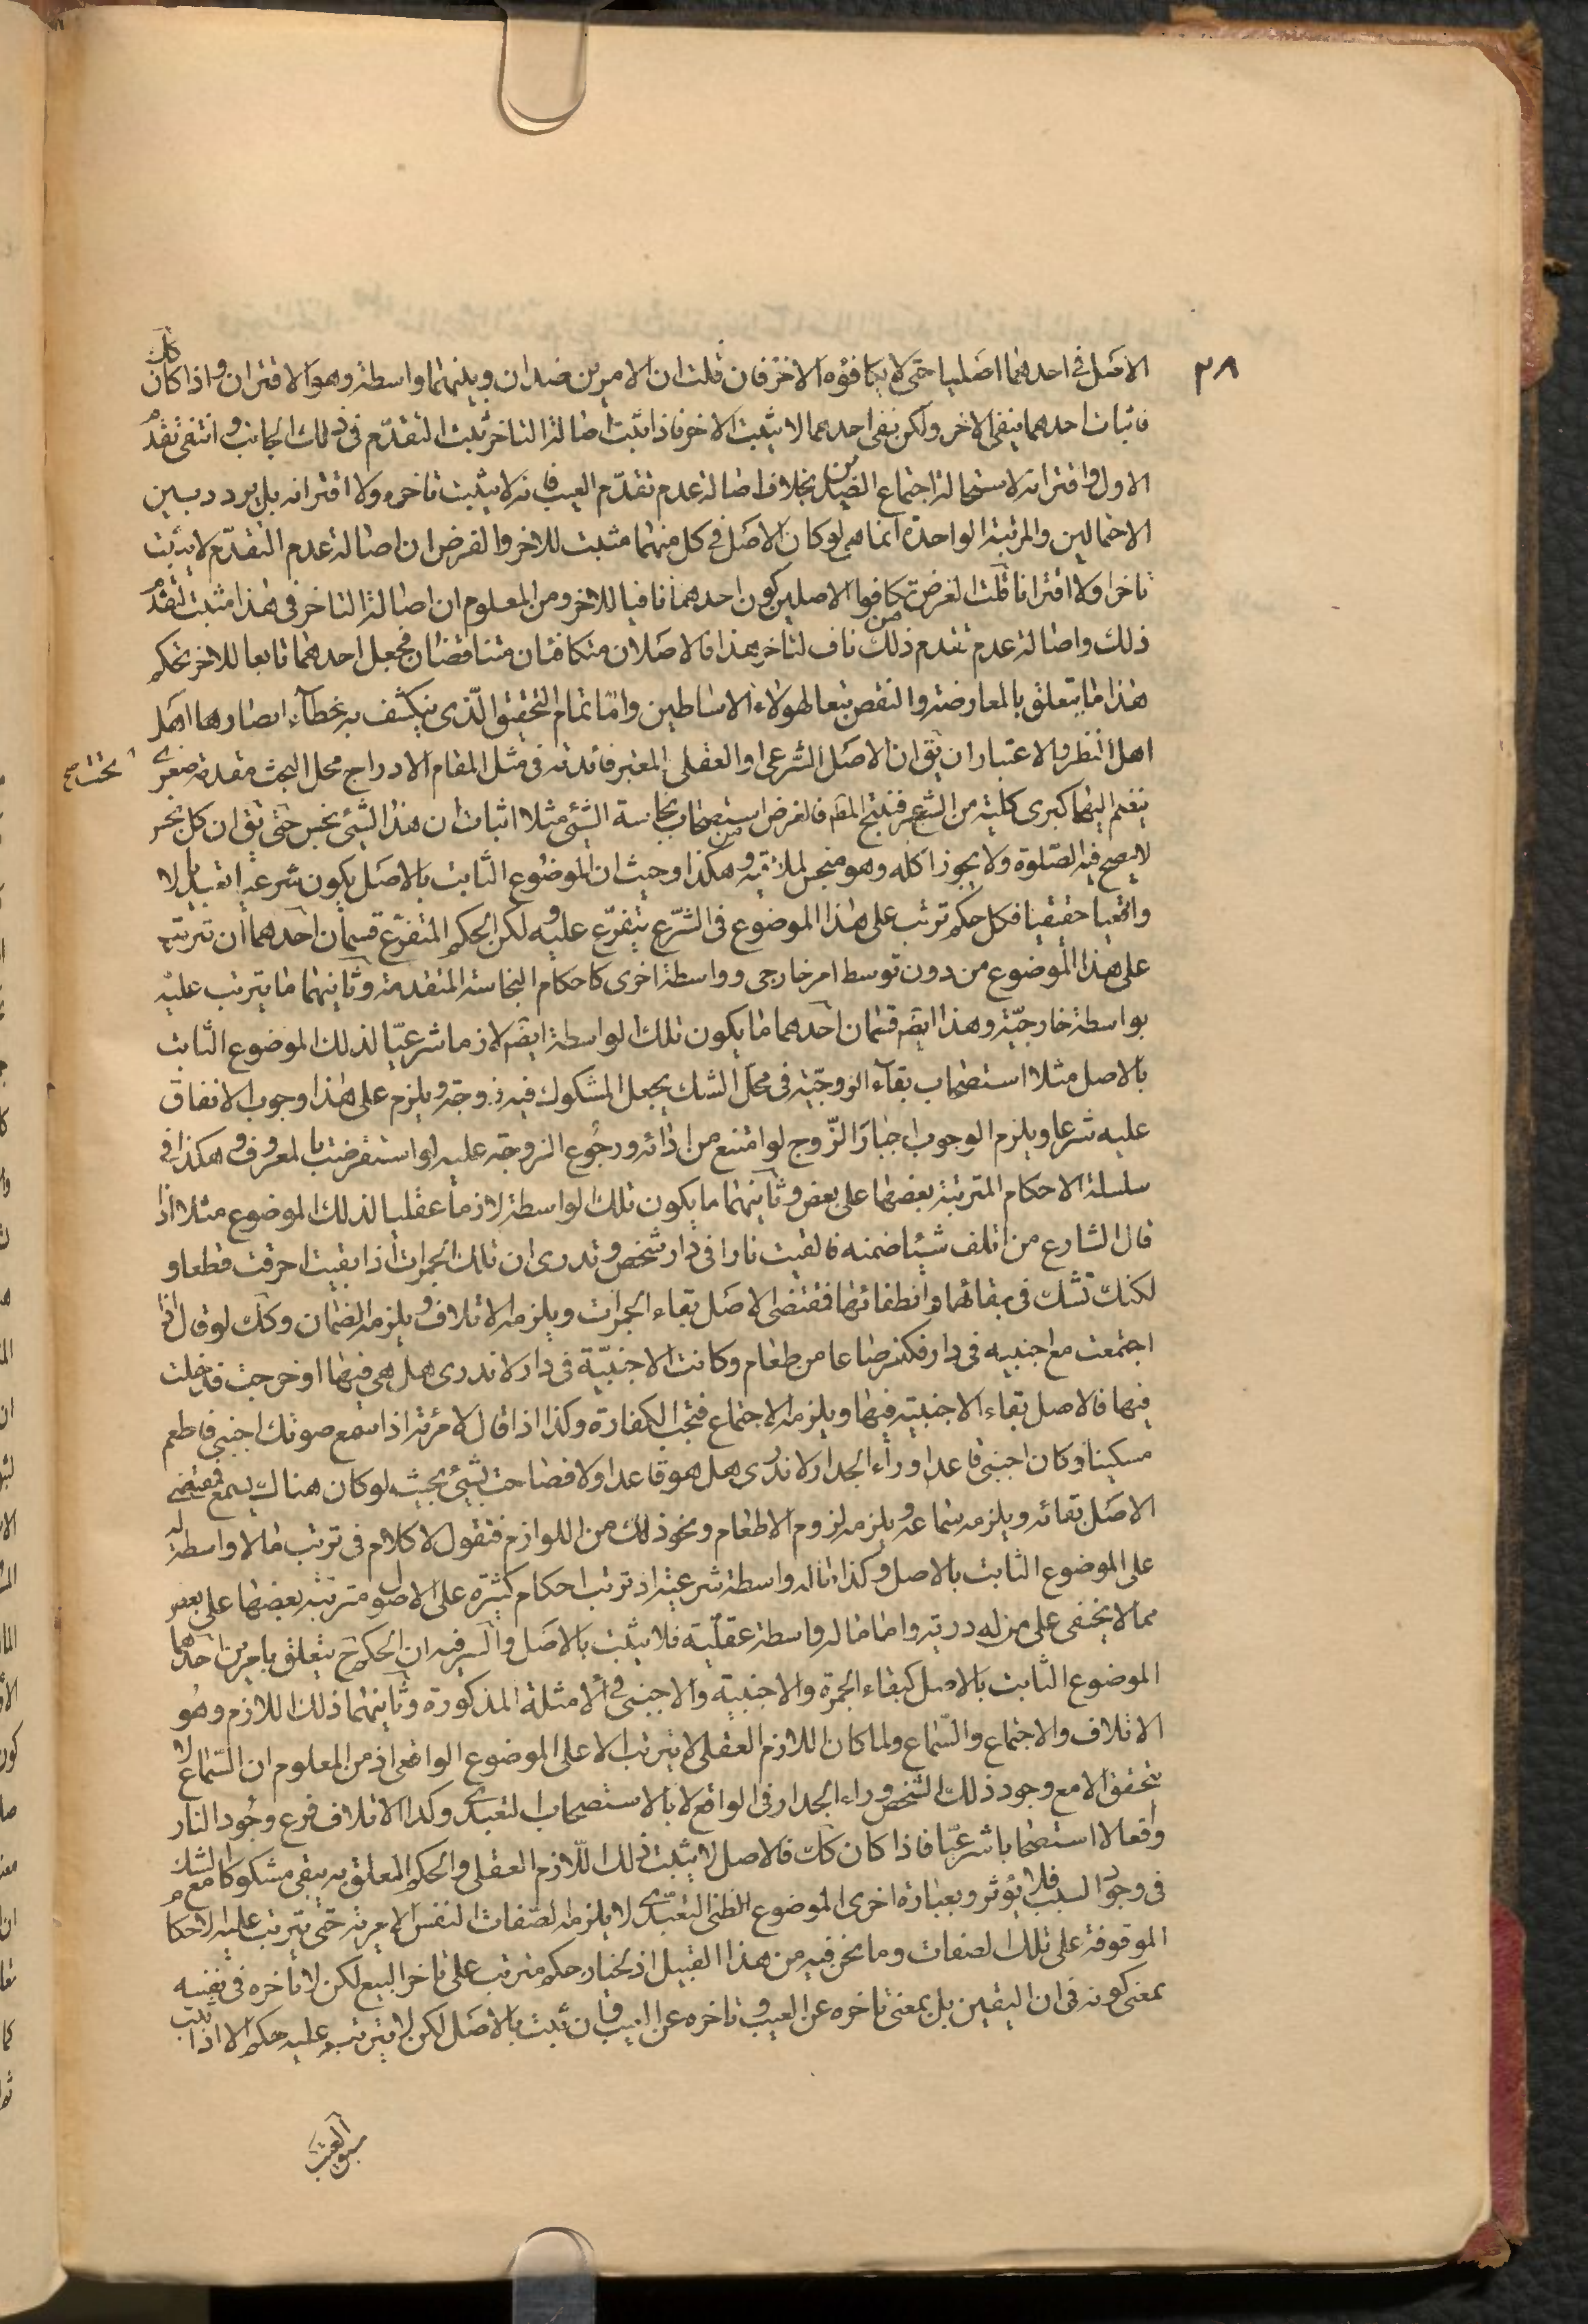 ٣٨
الاصل فى احدهما اصليا حتى لا يكافؤه الاخر فان قلت ان الامرين ضدان وبينهما واسطة وهو الاقتران واذا كان كك
فاثبات احدهما ينفى الاخر ولكن نفى احدهما لا يثبت الاخر فاذا ثبت اصالة التاخر ثبت التقدّم فى ذلك الجانب وانتفى تقدم
الاول واقترانه لاستحالة اجتماع الضدين بخلاف اصالة عدم تقدّم العيب فانه لا يثبت تاخره ولا اقترانه بل يردد بين
الاحتمالين والمرتبة الواحدة انما هى لو كان الاصل فى كل منهما مثبت للاخر والفرض ان اصالة عدم التقدّم لا يثبت
تاخرا ولا اقترانا قلت الغرض من تكافوا الاصلين كون احدهما نافيا للاخر ومن المعلوم ان اصالة التاخر فى هذا مثبت لتقدم
ذلك واصالة عدم تقدم ذلك ناف لتاخر هذا فالاصلان متكافئان متناقضان فجعل احدهما تابعا للاخر تحكم
هذا ما يتعلق بالمعارضة والنقض تبعا لهولاء الاساطين وامّا تمام التحقيق الّذى ينكشف به غطاء ابصارها اهل
اهل النظر والاعتبار ان يق ان الاصل الشرعى او العقلى المعتبر فائدته فى مثل المقام الادراج محل البحث مقدمة صغرى
تحت صح
ينضم اليها كبرى كلية من الشرع فتنتج المط فالغرض من استصحاب نجاسة الشئ مثلا اثبات ان هذا الشئ نجس حتى تق ان كل نجس
لا يصح فيه الصّلوة ولا يجوز اكله وهو منجس لملاقيه وهكذا وحيث ان الموضوع الثابت بالاصل يكون شرعيا تعبديا لا
واقعيا حقيقيا فكل حكم ترتب على هذا الموضوع فى الشّرع يتفرّع عليه ولكن الحكم المتفرّع قسمان احدهما ان تترتب
على هذا الموضوع من دون توسط امر خارجى وواسطة اخرى كاحكام النجاسة المتقدمة وثانيهما ما يترتب عليه
بواسطة خارجيّة وهذا ايضا قسمان احدهما ما يكون تلك الواسطة ايضا لازما شرعيّا لذلك الموضوع الثابت
بالاصل مثلا استصحاب بقاء الزوجيّة فى محل الشك يجعل المشكوك فيه زوجة ويلزم على هذا وجوب الانفاق
عليه شرعا ويلزم الوجوب اجبار الزّوج لو امتنع من ادائه ورجوع الزوجة عليه لو استقرضت بالمعروف وهكذا فى
سلسلة الاحكام المترتبة بعضها على بعض وثانيهما ما يكون تلك الواسطة لازما عقليا لذلك الموضوع مثلا اذا
قال الشارع من اتلف شيئا ضمنه فالقيت نارا فى دار شخص وتدرى ان تلك الجمرات اذا بقيت احرقت قطعا و
لكنك تشك فى بقائها وانطفائها فمقتضى الاصل بقاء الجمرات ويلزمه الاتلاف ويلزمه الضمان وكك لو قال اذا
اجتمعت مع اجنبيه فى دار فكفر صاعا من طعام وكانت الاجنبيّة فى دار لا ندرى هل هى فيها او خرجت فدخلت
فيها فالاصل بقاء الاجنبيّة فيها ويلزمه الاجتماع فتجب الكفارة وكذا اذا قال لامرئة اذا سمع صوتك اجنبى فاطعم
مسكينا وكان اجنبى قاعدا وراء الجدار لا ندرى هل هو قاعد او لا فصاحت بشئ بحيث لو كان هناك يسمع فمقتضى
الاصل بقائه ويلزمه سماعه ويلزمه لزوم الاطعام ونحو ذلك من اللوازم فنقول لا كلام فى ترتب ما لا واسطة له
على الموضوع الثابت بالاصل وكذا ما له واسطة شرعية اذ ترتب احكام كثيرة على الاصول مترتبة بعضها على بعض
مما لا يخفى على من له درية واما ما له واسطة عقليّة فلا يثبت بالاصل والسر فيه ان الحكم ح يتعلق بامرين احدهما
الموضوع الثابت بالاصل كبقاء الجمرة والاجنبية والاجنبى فى الامثلة المذكورة وثانيهما ذلك اللازم وهو
الاتلاف والاجتماع والسّماع ولما كان اللازم العقلى لا يترتب الا على الموضوع الواقعى اذ من المعلوم ان السّماع لا
يتحقق الا مع وجود ذلك الشخص وراء الجدار فى الواقع لا بالاستصحاب التعبدى وكذا الاتلاف فرع وجود النار
واقعا لا استصحابا شرعيّا فاذا كان كك فالاصل لا يثبت ذلك اللّازم العقلى والحكم المعلق به يبقى مشكوكا مع الشك
فى وجود السبب فلا يؤثر وبعبارة اخرى الموضوع الظنى التعبّدى لا يلزمه الصّفات النفس الامرية حتى يترتب عليه الاحكام
الموقوفة على تلك الصفات وما نحن فيه من هذا القبيل اذ الخيار حكم مترتب على تاخر البيع لكن لا تاخره فى نفسه
بمعنى كونه فى ان اليقين بل بمعنى تاخره عن العيب وتاخره عن العيب وان ثبت بالاصل لكن لا يترتب عليه حكم الا اذا ثبت
سبق العيب